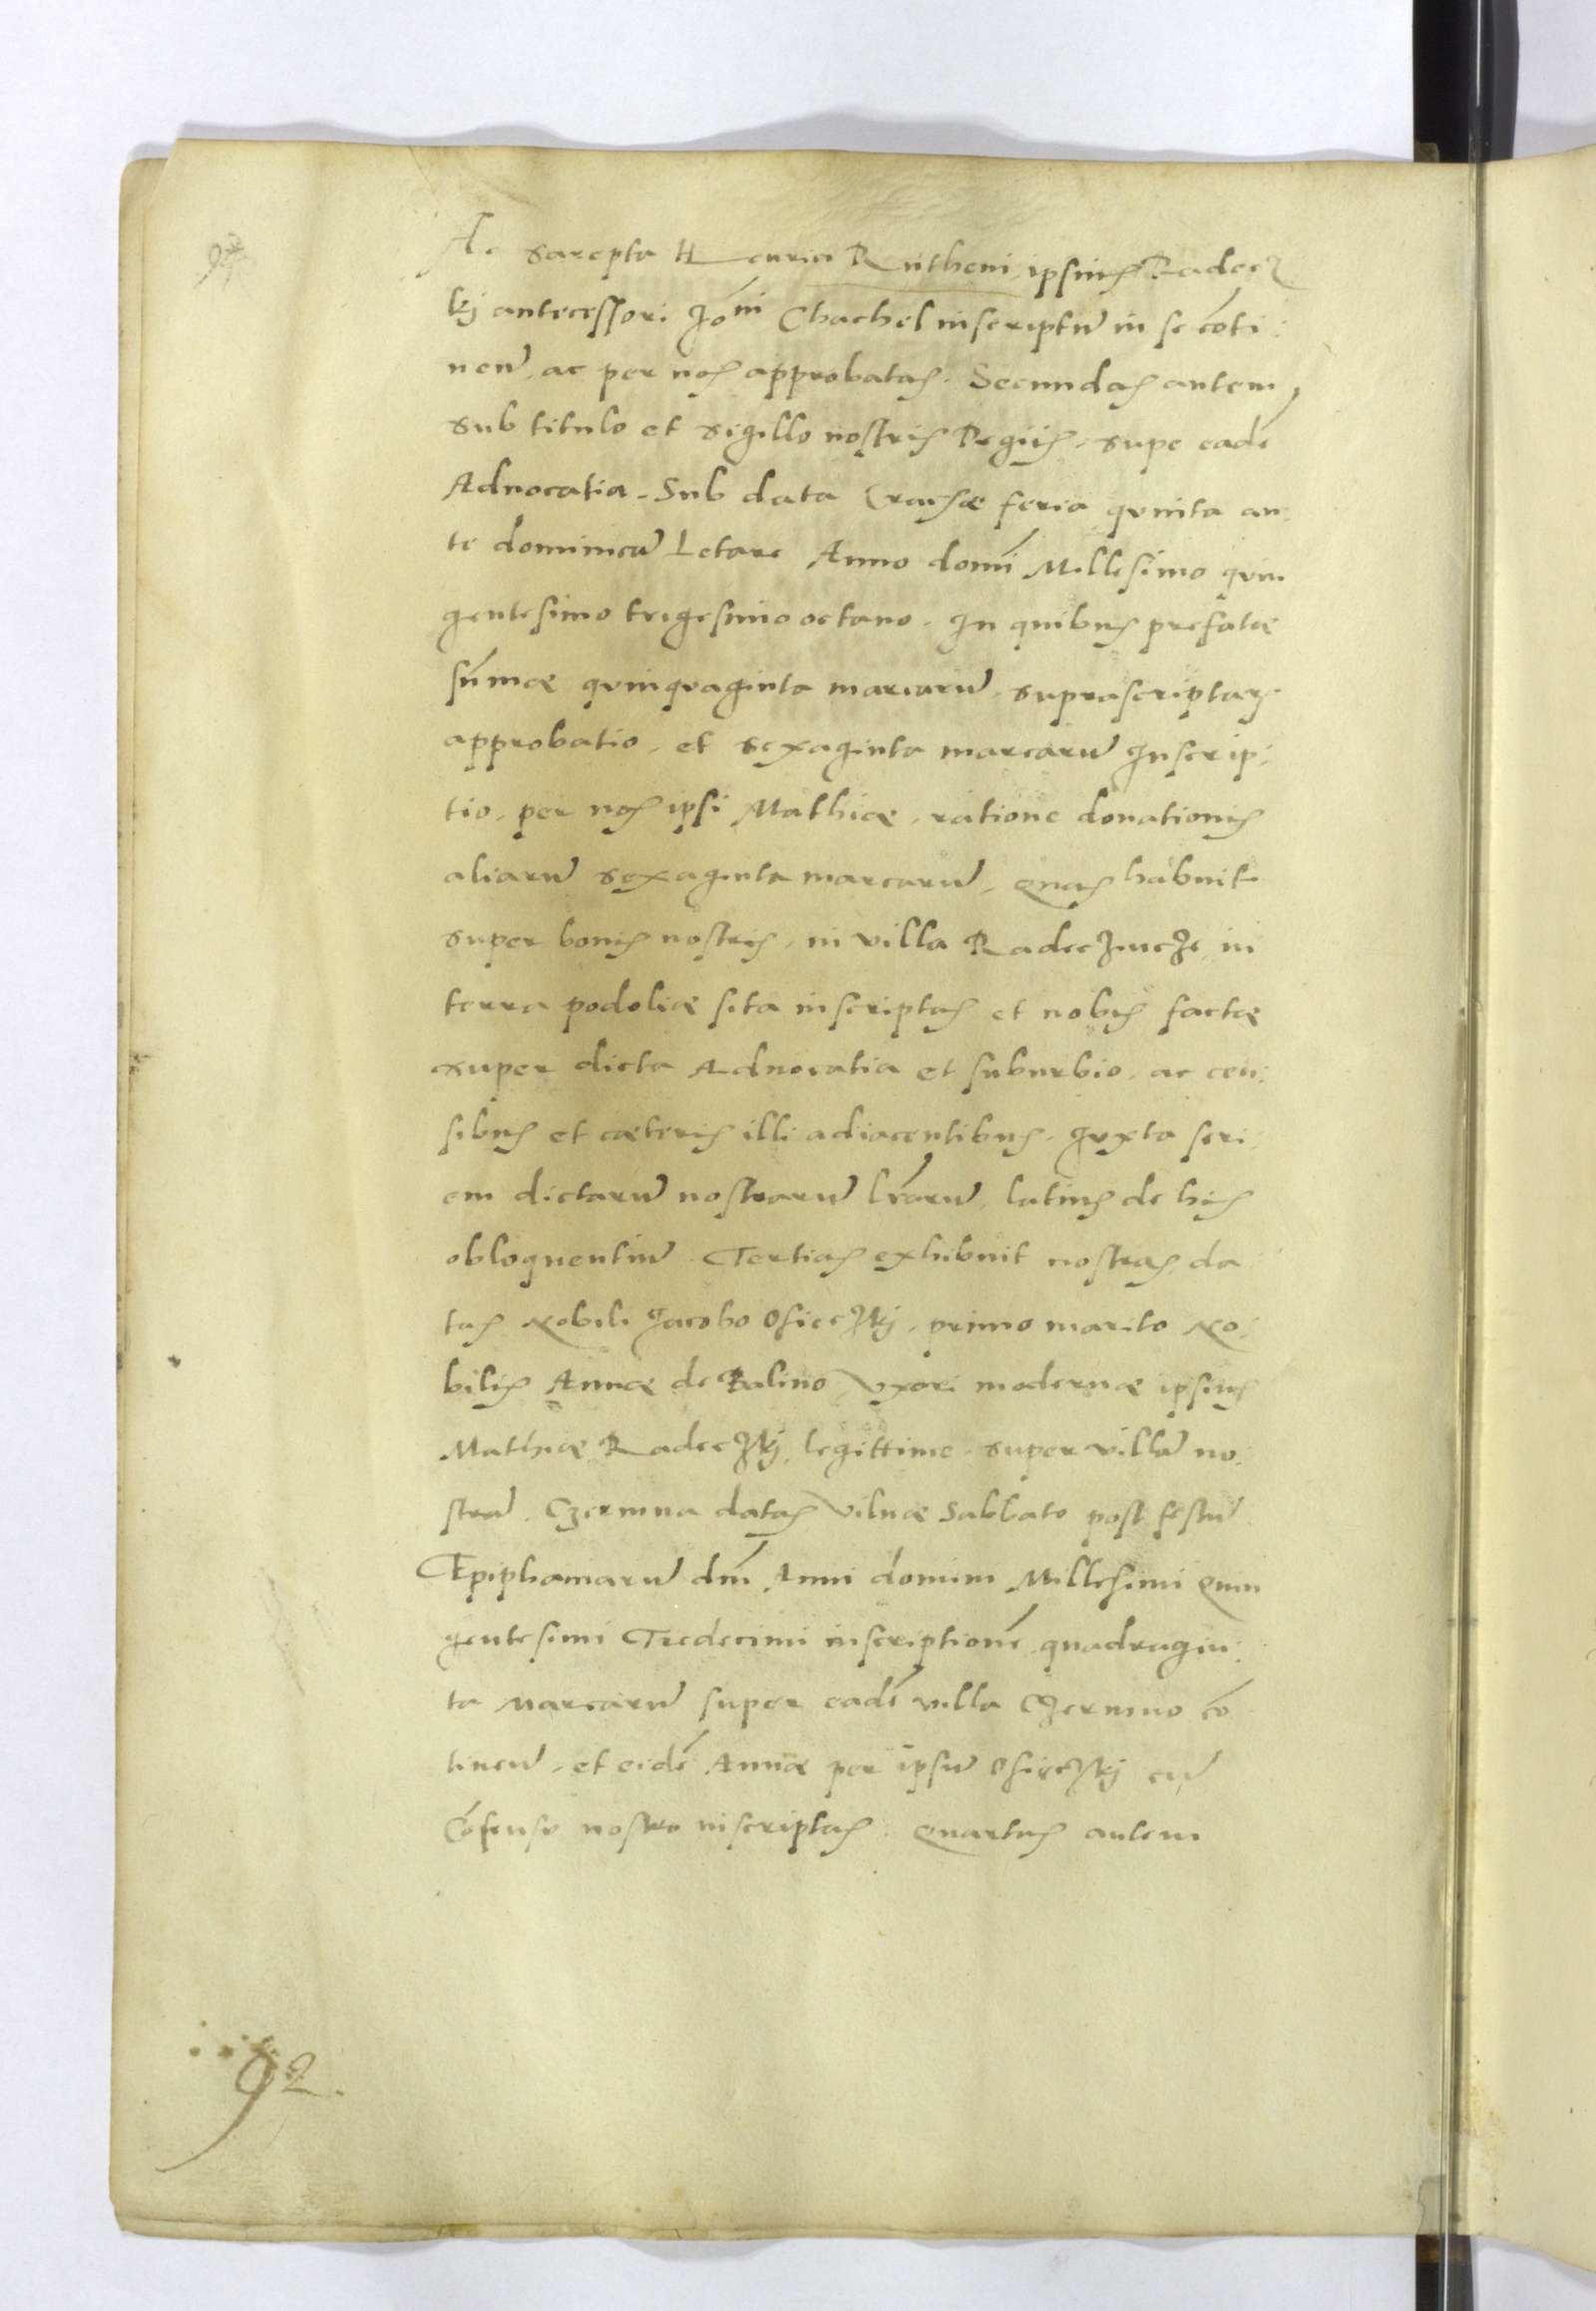 Ac Sarepta Henrici Rutheni, ipsius Radecz
kj antecessori Joñi Chachel inscriptũ in se cõti:
nenũ, ac per nos approbatas. Secundas autem,
sub titulo et sigillo nostris Regiis, supe eadẽ
Aduocatia. Sub data Cracouiæ feria quinta an:
te dominicũ Letare Anno domĩ Millesimo quin
gentesimo trigesimo octauo. In quibus prefatæ
sũmæ quinquaginta marcarũ, suprascriptaꝝ
approbatio, et sexaginta marcarũ Inscrip:
tio, per nos ipsi Mathiæ, ratione donationis
aliarũ sexaginta marcarũ, quas habuit
super bonis nostris, in villa Radecz in
terra podoliæ sita inscriptas et nobis factæ
super dicta Aduocatia et suburbio, ac cen:
sibus et cæteris illi adiacentibus. Juxta seri:
em dictarũ nostrarũ lr̃arũ, latius de his
obloquentiũ. Tertias exhibuit nostras da
tas Nobili Jacobo Osieczkj, primo marito No:
bilis Annæ de Balino, Vxori modernæ ipsius
Mathiæ Radeczkj, legittime, super villã no:
strã. Czernina datas Vilnæ Sabbato post festũ
Epiphaniarũ dnĩ Anni domini Millesimi Quin
gentesimi Tredecimi inscriptionẽ quadragin:
ta Marcarũ super eadẽ villa Czernino cõ
tinenũ, et eidẽ Annæ per ipsũ Osieczkj cũ
Cõsensu nostro inscriptas. Quartas autem
92.